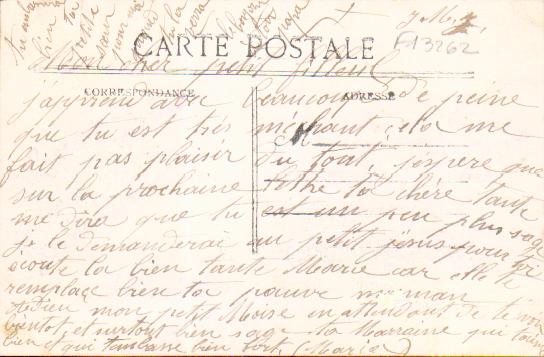 tu embrassera
bien ta
petite
sœur
pour moi
la
CARTE POSTALE
F13262
Mon cher petit filleul
CORRESPONDANCE
ADRESSE
j'apprend avec beaucoup de peine
que tu est très méchant, ela me
fait pas plaisir du tout, j'espère que
sur la prochaine lettre ta chère tante
me dira que tu est un peu plus sage
je le demanderai au petit jésus pour toi
écoute la bien tante Marie car elle te
remplace bien ta pauvre maman
Adieu mon petit Moïse en attendant de te voir
bientot, et surtout bien sage ta Marraine qui t'aime
bien et qui t'embrasse bien fort, (Maria)